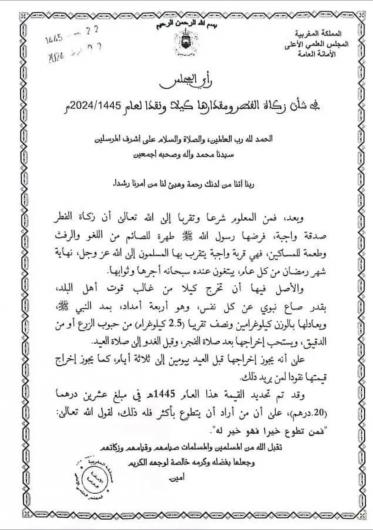 بسم الله الرحمن الرحيم
المملكة المغربية
المجلس العلمي الأعلى
الأمانة العامة
1445
رأي المجلس
في شأن زكاة الفطر ومقدارها كيلا ونقدا لعام 2024/1445م
الحمد لله رب العالمين، والصلاة والسلام على أشرف المرسلين
سيدنا محمد وآله وصحبه أجمعين
ربنا آتنا من لدنك رحمة وهيئ لنا من أمرنا رشدا.
وبعد، فمن المعلوم شرعا وتقربا إلى الله تعالى أن زكاة الفطر
صدقة واجبة، فرضها رسول الله ﷺ طهرة للصائم من اللغو والرفث
وطعمة للمساكين، فهي قربة واجبة يتقرب بها المسلمون إلى الله عز وجل، نهاية
شهر رمضان من كل عام، يبتغون عنده سبحانه أجرها وثوابها.
والأصل فيها أن تخرج كيلا من غالب قوت أهل البلد،
بقدر صاع نبوي عن كل نفس، وهو أربعة أمداد، بمد النبي ﷺ،
ويعادلها بالوزن كيلوغرامين ونصف تقريبا (2.5 كيلوغرام) من حبوب الزرع أو من
الدقيق، ويستحب إخراجها بعد صلاة الفجر، وقبل الغدو إلى صلاة العيد.
على أنه يجوز إخراجها قبل العيد بيومين إلى ثلاثة أيام، كما يجوز إخراج
قيمتها نقودا لمن يريد ذلك.
وقد تم تحديد القيمة هذا العام 1445هـ في مبلغ عشرين درهما
(20.درهم)، على أن من أراد أن يتطوع بأكثر فله ذلك، لقول الله تعالى:
"فمن تطوع خيرا فهو خير له".
تقبل الله من المسلمين والمسلمات صيامهم وقيامهم وزكاتهم
وجعلها بفضله وكرمه خالصة لوجهه الكريم
آمين